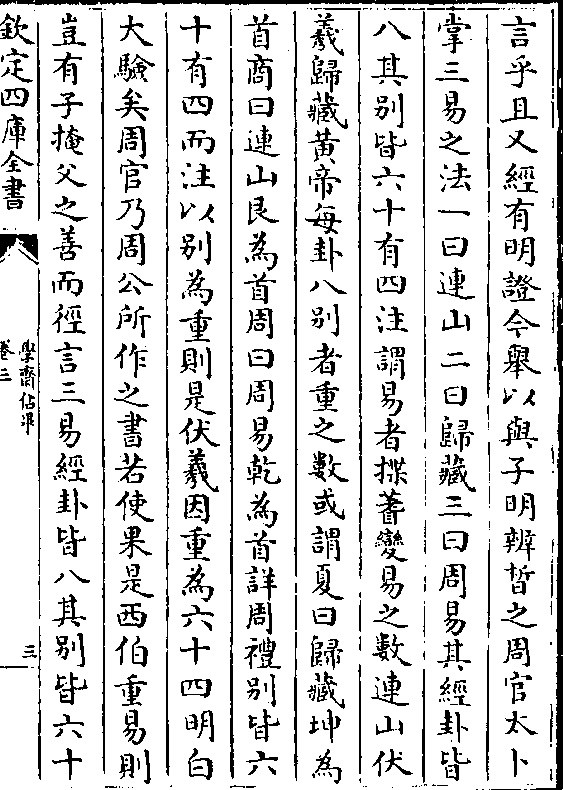 言乎且又經有明證今舉以與子明辨晳之周官太卜
掌三易之法一曰連山二曰歸藏三曰周易其經卦皆
八其别皆六十有四注謂易者揲蓍變易之數連山伏
羲歸藏黄帝每卦八别者重之數或謂夏曰歸藏坤為
首商曰連山艮為首周曰周易乾為首詳周禮别皆六
十有四而注以别為重則是伏羲因重為六十四明白
大驗矣周官乃周公所作之書若使果是西伯重易則
豈有子掩父之善而徑言三易經卦皆八其别皆六十
欽定四庫全書
學齋佔畢
卷二
三